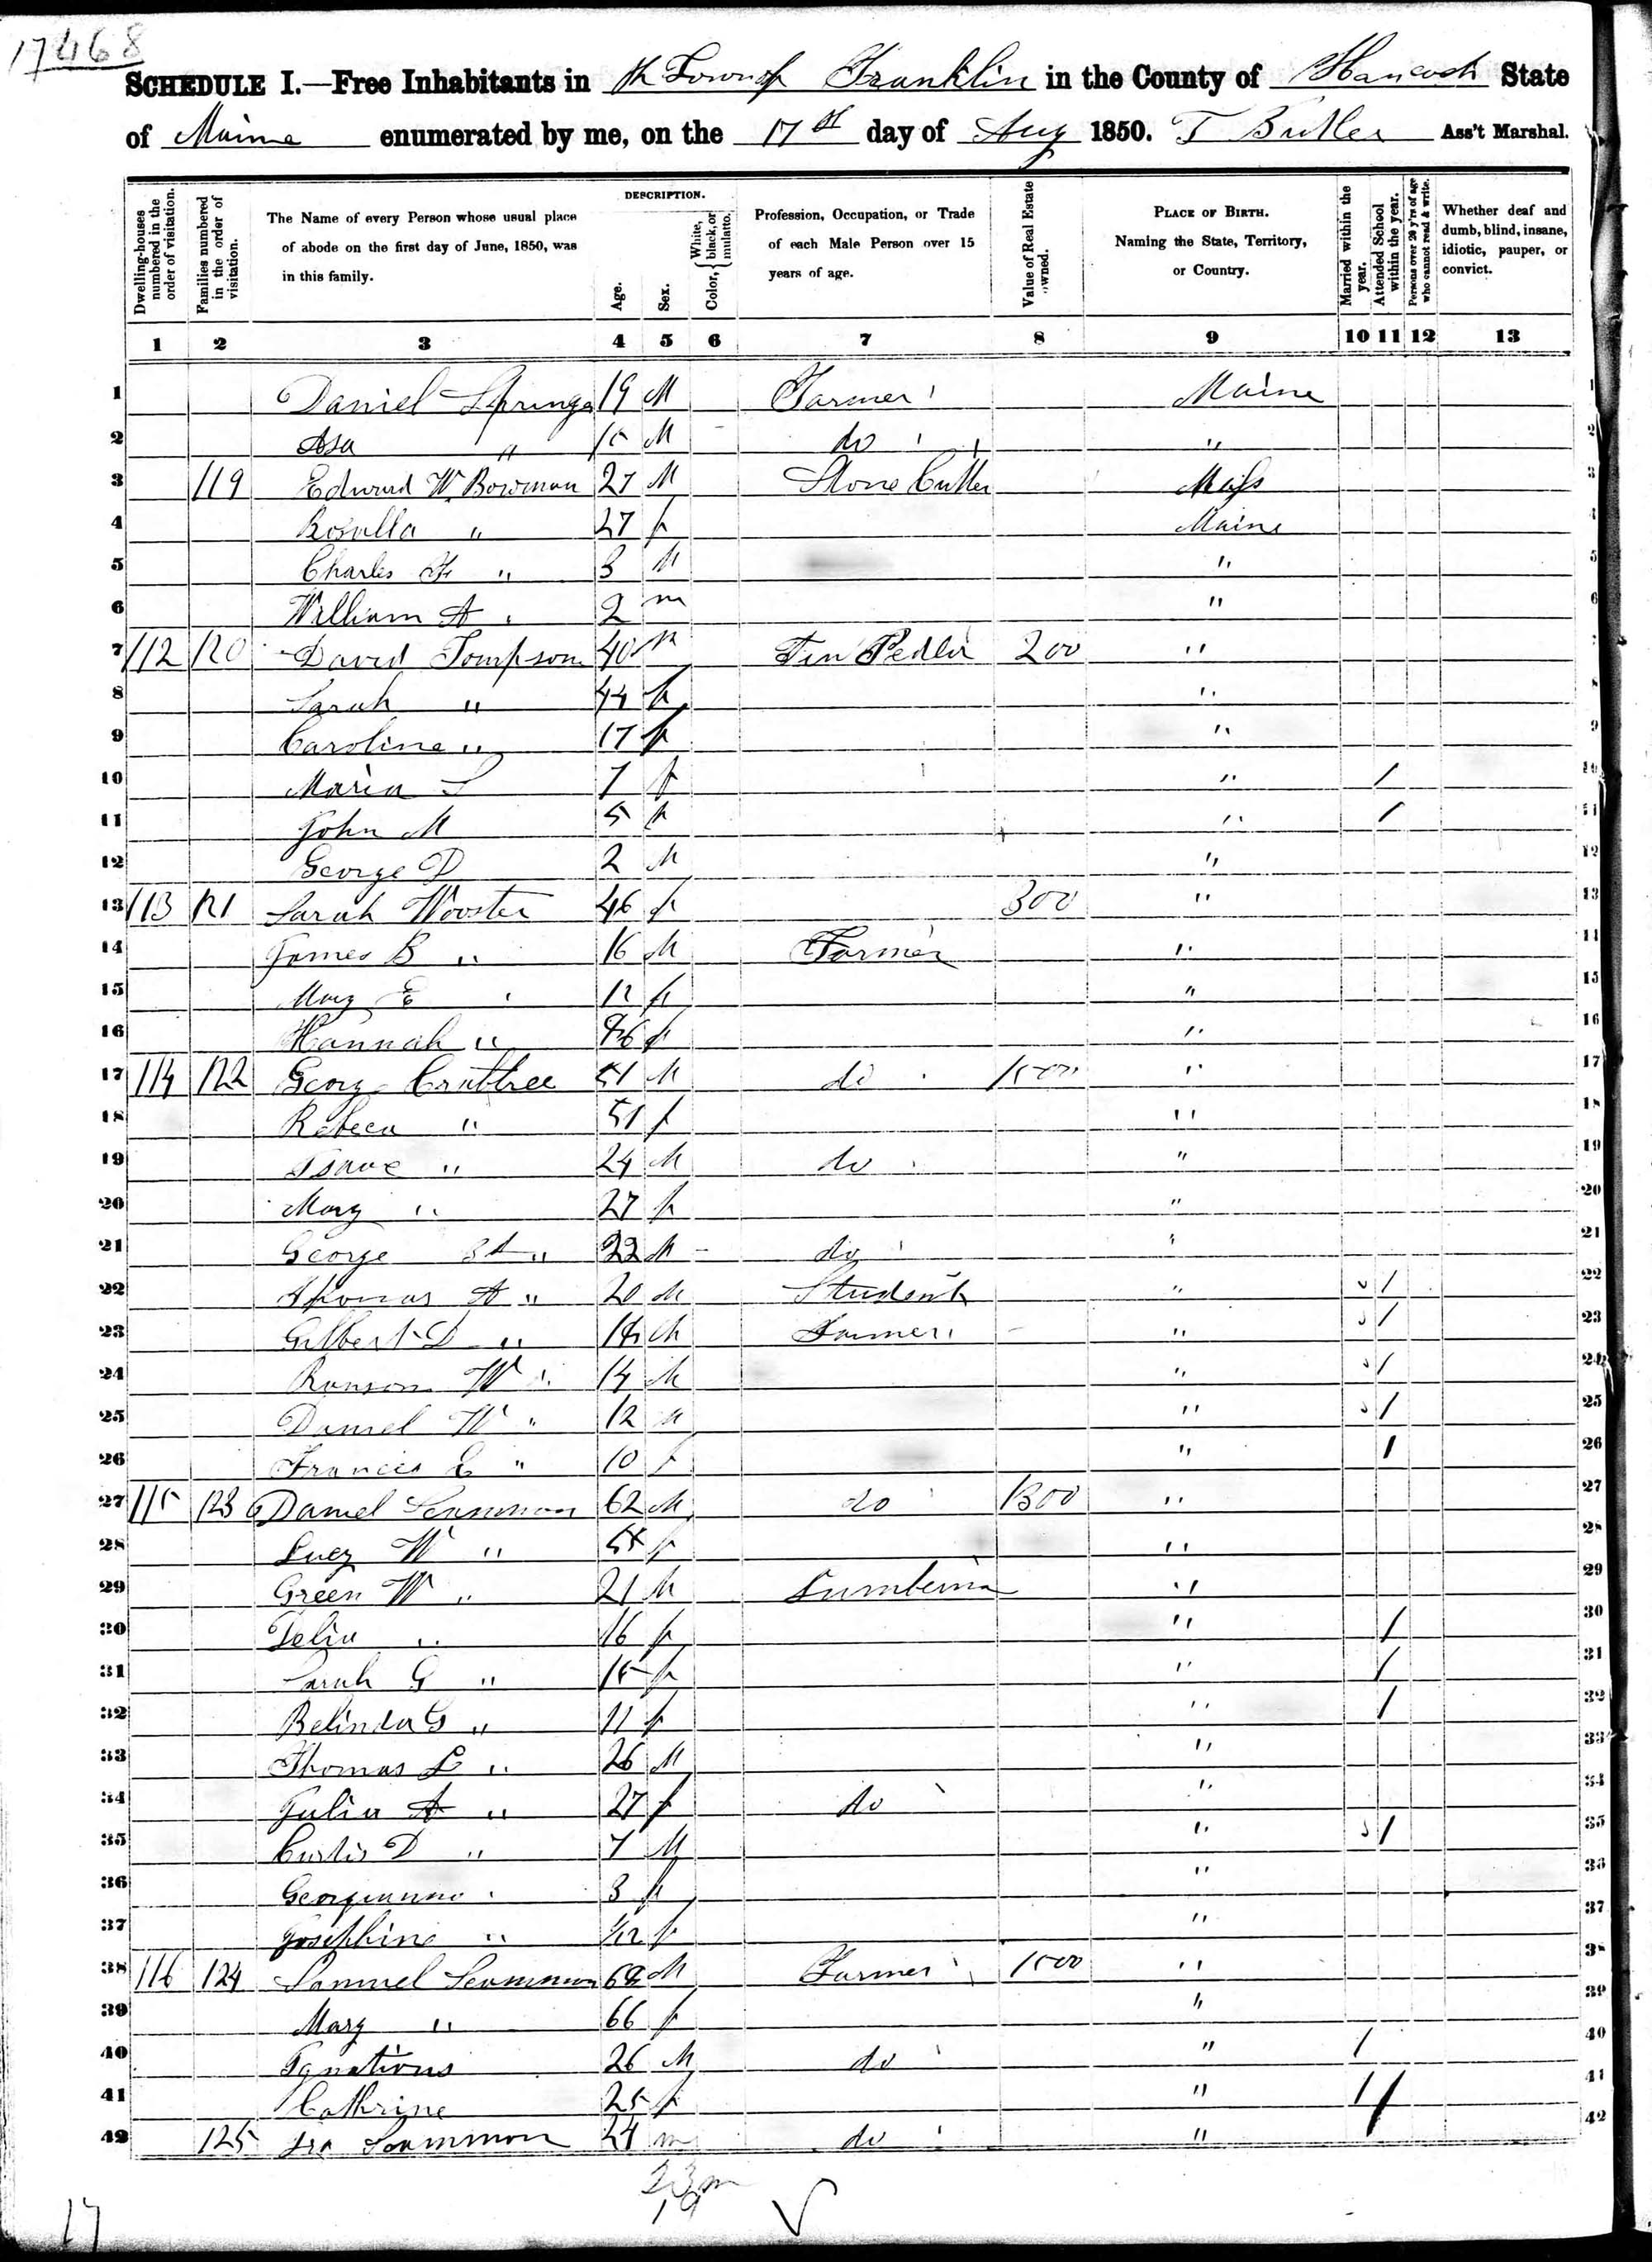 17468
SCHEDULE I.—Free Inhabitants in th Town of Franklin in the County of Hancock State
of Maine enumerated by me, on the 17th day of Aug 1850. T Butler Ass't Marshal.
Dwelling-houses numbered in the order of visitation.
Families numbered in the order of visitation.
The Name of every Person whose usual place of abode on the first day of June, 1850, was in this family.
DESCRIPTION.
Age.
Sex.
Color, { White, black, or mulatto.
Profession, Occupation, or Trade of each Male Person over 15 years of age.
Value of Real Estate owned.
PLACE OF BIRTH. Naming the State, Territory, or Country.
Married within the year.
Attended School within the year.
Persons over 20 y'rs of age who cannot read & write.
Whether deaf and dumb, blind, insane, idiotic, pauper, or convict.
1 2 3 4 5 6 7 8 9 10 11 12 13
1 Daniel Springer 19 M Farmer Maine 1
2 Asa " 15 M do " 2
3 119 Edward W Bowman 27 M Stone Cutter Mass 3
4 Rosilla " 27 f Maine 4
5 Charles F " 3 M " 5
6 William A " 2 m " 6
7 112 120 David Tompson 40 M Tin Pedler 200 " 7
8 Sarah " 44 f " 8
9 Caroline " 17 f " 9
10 Maria S 7 f " / 10
11 John M 5 " / 11
12 George D 2 M " 12
13 113 121 Sarah Wooster 46 f 300 " 13
14 James B " 16 M Farmer " 14
15 Mary E " 12 f " 15
16 Hannah " f " 16
17 114 122 Georg Crabtree 51 M do 1500 " 17
18 Rebeca " 51 f " 18
19 Isaac " 24 M do " 19
20 Mary " 27 f " 20
21 George 3d " 22 M - do " 21
22 Thomas A " 20 M Student " / 22
23 Gilbert D " 18 M Farmer " / 23
24 Ranson W " 14 M " / 24
25 Daniel W " 12 M " / 25
26 Frances E " 10 f " / 26
27 115 123 Daniel Scammon 62 M do 1300 " 27
28 Lucy W " f " 28
29 Green W " 21 M Lumberman " 29
30 Delia " 16 f " / 30
31 Sarah G " 15 f " / 31
32 Belinda G " 11 f " / 32
33 Thomas L " 26 M " 33
34 Julia A " 27 f do " 34
35 Curtis D " 7 M " / 35
36 Georgianna " 3 f " 36
37 Josephine " 1/12 f " 37
38 116 124 Samuel Scammon 68 M Farmer 1500 " 38
39 Mary " 66 f " 39
40 Ignatious 26 M do " / 40
41 Cathrine 25 f " / / 41
42 125 Ira Scammon 24 m do " 42
23 m
19
17